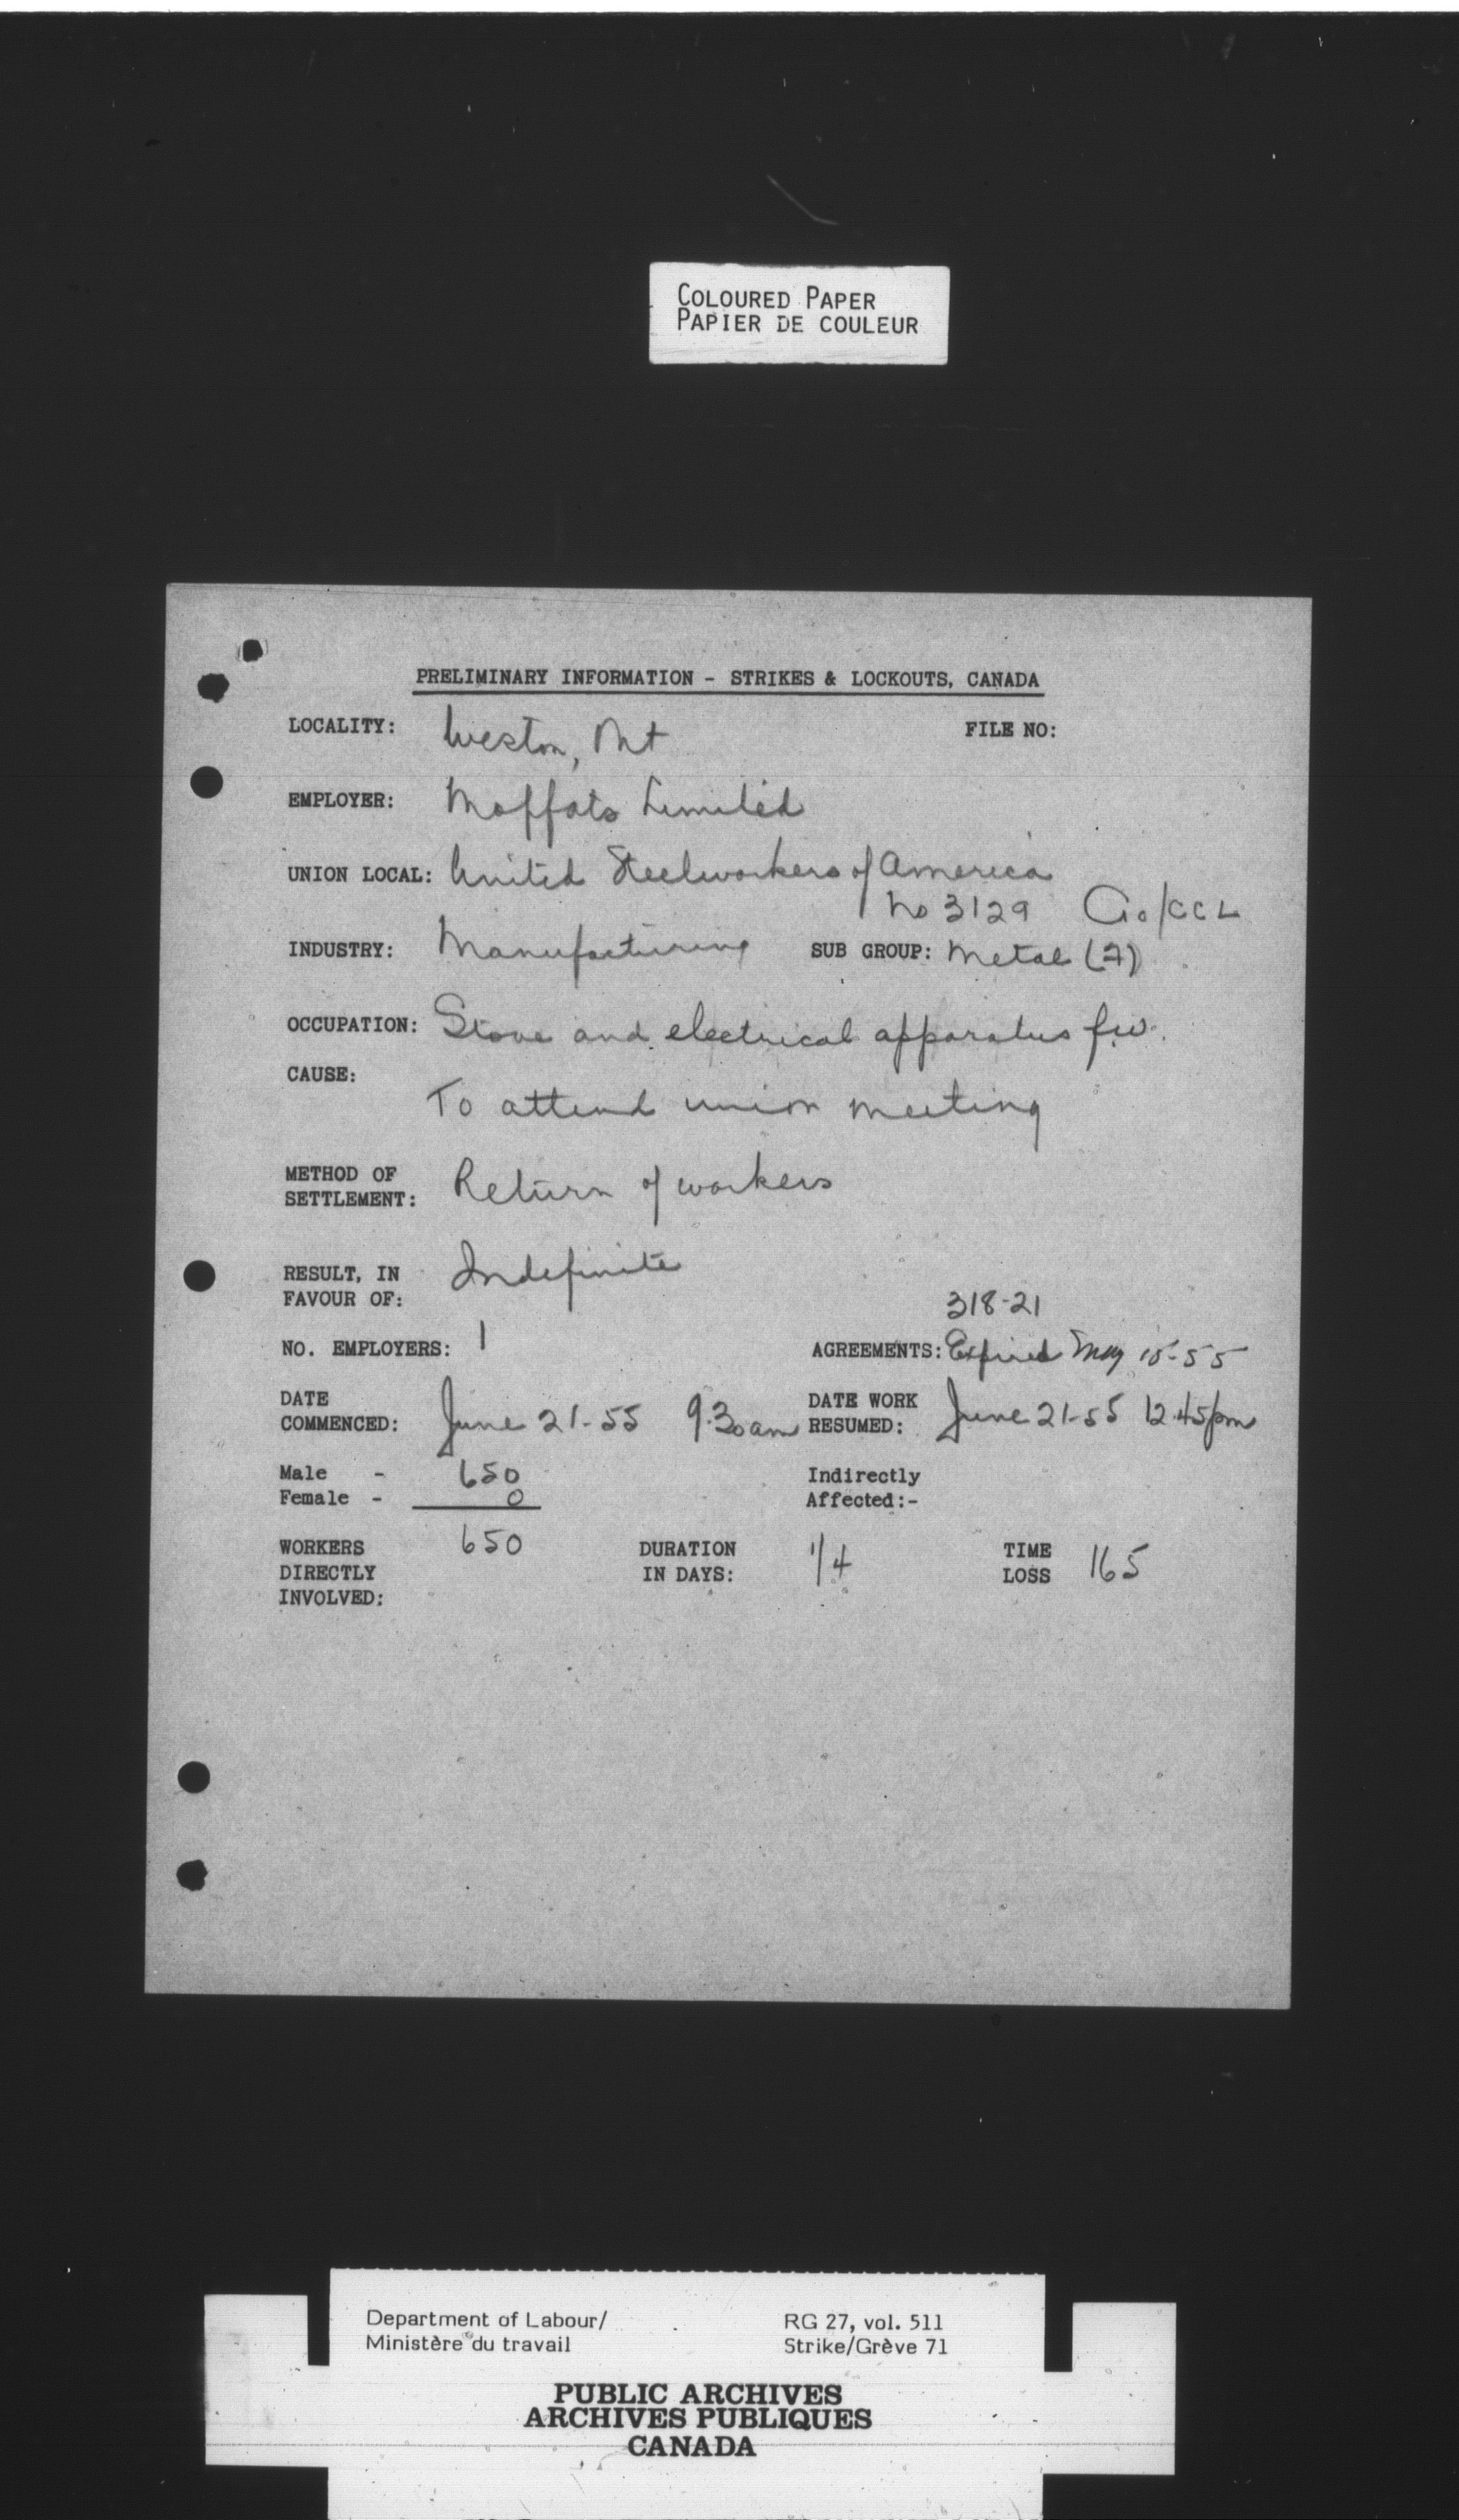 COLOURED PAPER
PAPIER DE COULEUR
PRELIMINARY INFORMATION - STRIKES & LOCKOUTS, CANADA
LOCALITY: Weston, Ont FILE NO:
EMPLOYER: Moffats Limited
UNION LOCAL: United Steelworkers of America
No 3129 Cio/CCL
INDUSTRY: Manufacturing SUB GROUP: Metal (7)
OCCUPATION: Stove and electrical apparatus f.w.
CAUSE:
To attend union meeting
METHOD OF
SETTLEMENT: Return of workers
RESULT, IN
FAVOUR OF: Indefinite
318-21
NO. EMPLOYERS: 1 AGREEMENTS: Expired May 15-55
DATE
COMMENCED: June 21-55 9.30am DATE WORK
RESUMED: June 21-55 12.45pm
Male - 650 Indirectly
Female - 0 Affected:-
WORKERS 650 DURATION 1/4 TIME 165
DIRECTLY IN DAYS: LOSS
INVOLVED:
Department of Labour/ RG 27, vol. 511
Ministère du travail Strike/Grève 71
PUBLIC ARCHIVES
ARCHIVES PUBLIQUES
CANADA